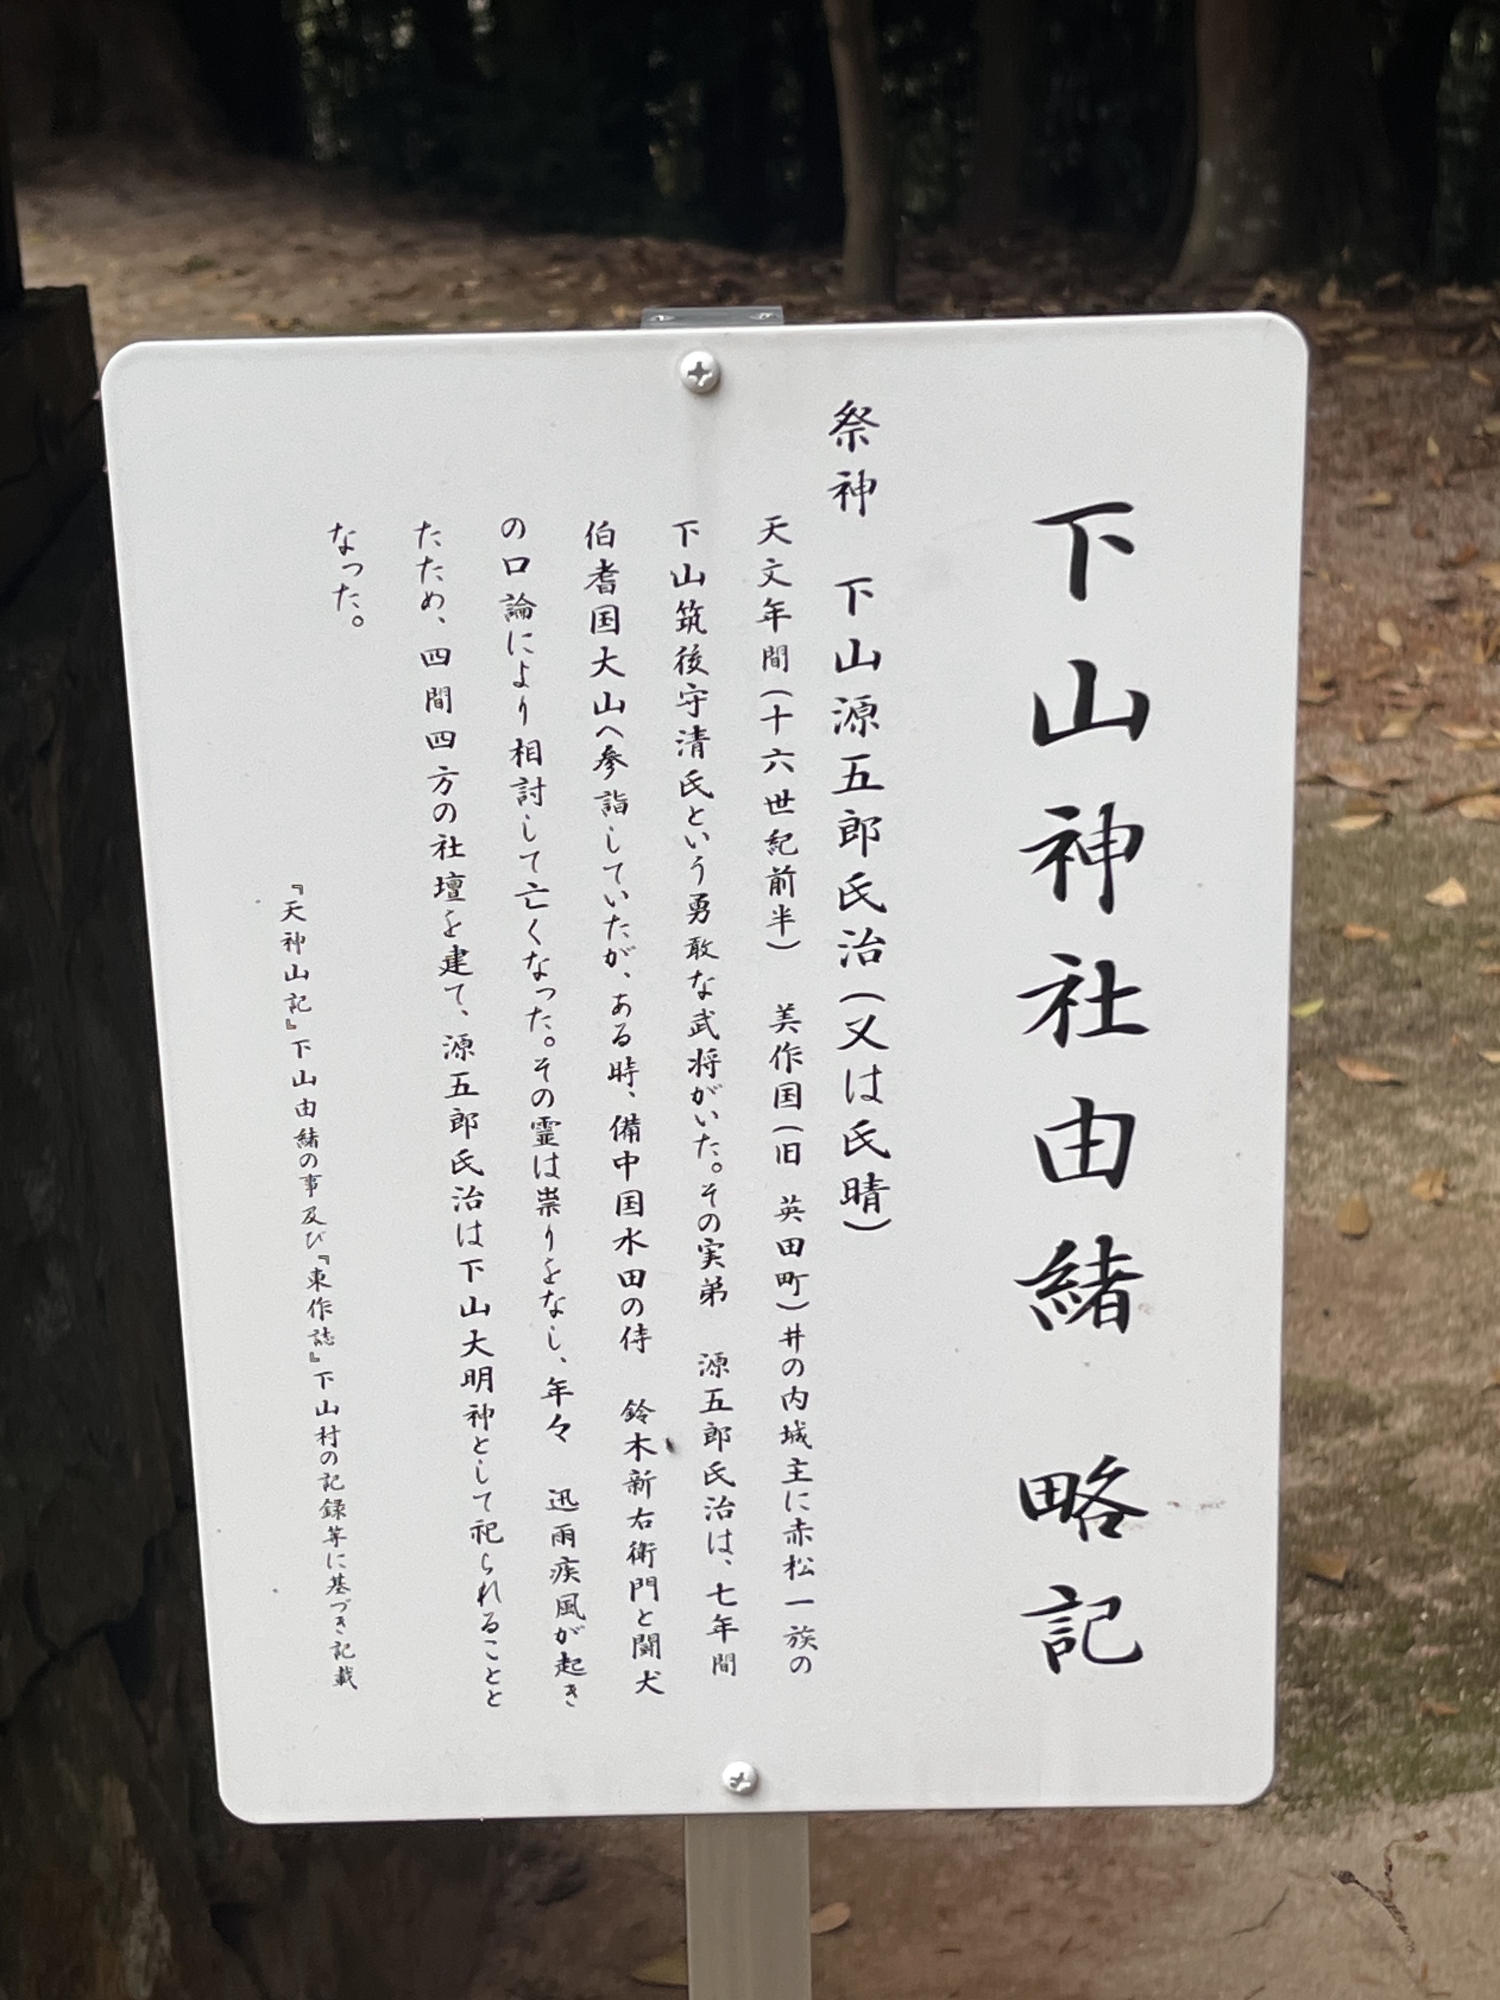 下山神社由緒 略記
祭神 下山源五郎氏治(又は氏晴)
天文年間(十六世紀前半) 美作国(旧 英田町)井の内城主に赤松一族の
下山筑後守清氏という勇敢な武将がいた。その実弟 源五郎氏治は、七年間
伯耆国大山へ参詣していたが、ある時、備中国水田の侍 鈴木新右衛門と闘犬
の口論により相討して亡くなった。その霊は祟りをなし、年々 迅雨疾風が起き
たため、四間四方の社壇を建て、源五郎氏治は下山大明神として祀られることと
なった。
『天神山記』下山由緒の事及び『東作誌』下山村の記録等に基づき記載